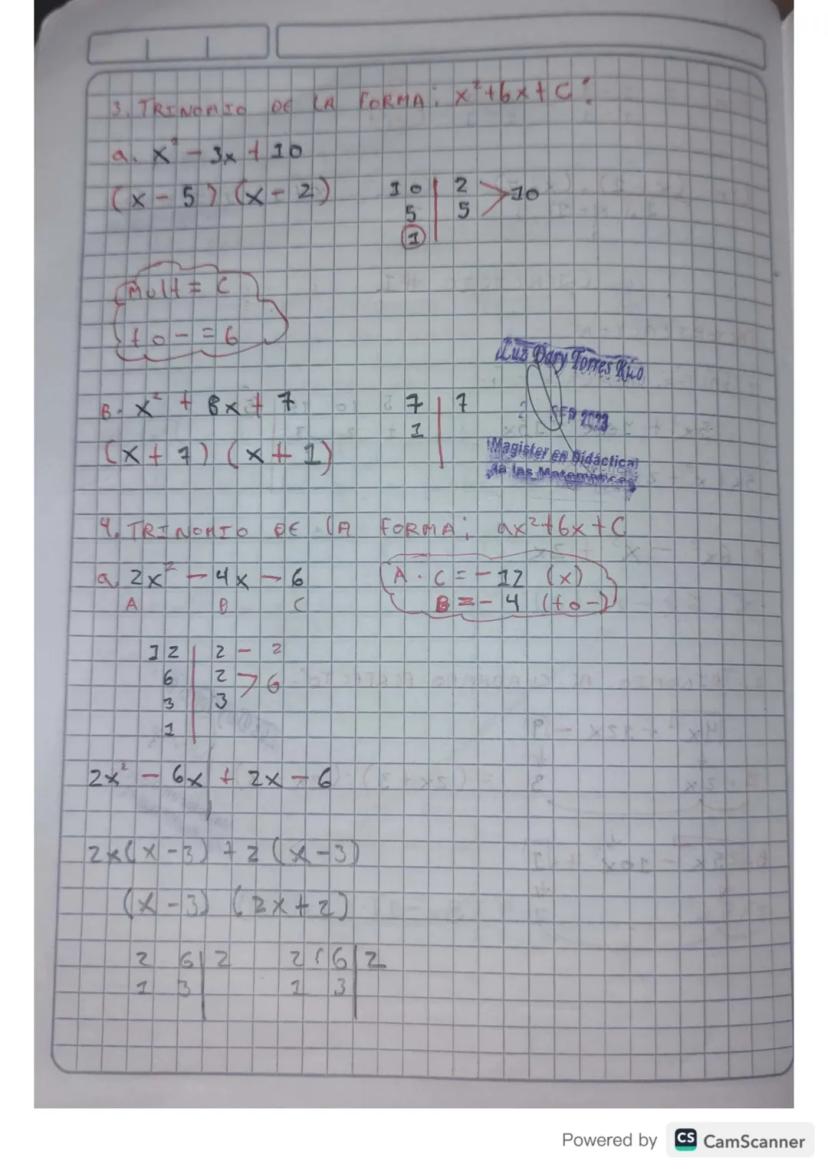 3. TRINOMIO DE LA FORMA: x²+bx+C:
a. x² - 3x + 10
(x - 5) (x - 2)
10 | 2 > 10
5 | 5
1
Mult = C
+ o - = b
B. x² + 8x + 7
7 | 7
1
(x + 7) (x + 1)
Luz Dary Torres Rico
SEP 2023
Magister en Didáctica
de las Matemáticas
4. TRINOMIO DE LA FORMA; ax²+bx+C
a. 2x² - 4x - 6
A B C
A · C = -12 (x)
B = -4 (+ o -)
12 | 2 - 2
6 | 2 > 6
3 | 3
1
2x² - 6x + 2x - 6
2x(x-3) + 2(x-3)
(x-3) (2x+2)
2 6 | 2 2 6 | 2
1 3 | 1 3 |
Powered by CS CamScanner